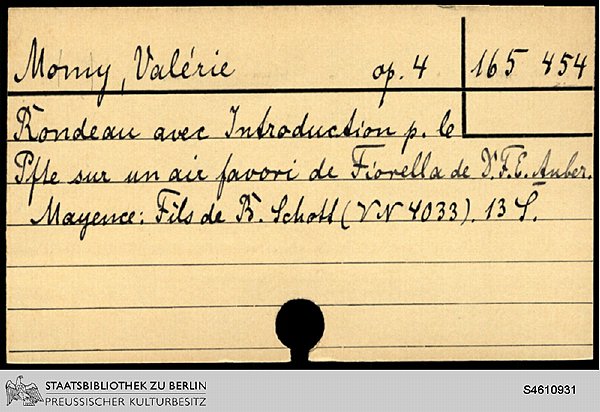 Momy, Valérie op. 4 165 454
Rondeau avec Introduction p. le
Pfte sur un air favori de Fiorella de D.F.E. Auber.
Mayence: Fils de B. Schott (VN 4033). 13 S.
STAATSBIBLIOTHEK ZU BERLIN
PREUSSISCHER KULTURBESITZ
S4610931